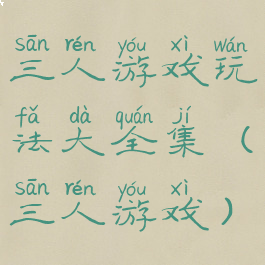 sān rén yóu xì wán
三人游戏玩
fǎ dà quán jí
法大全集（
sān rén yóu xì
三人游戏）